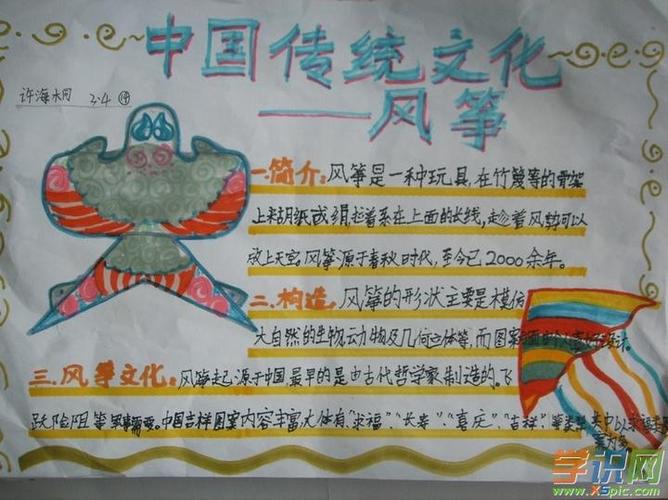 中国传统文化
——风筝
许海 3.4
一.简介:风筝是一种玩具,在竹篾等的骨架
上糊纸或绢,拉着系在上面的长线,趁着风势可以
放上天空。风筝源于春秋时代,至今已2000余年。
二.构造,风筝的形状主要是模仿
大自然的生物,动物及几何立体等,而图案
三.风筝文化:风筝起源于中国,最早的是由古代哲学家制造的。飞
跃险阻等军事需要。中国吉样图案内容丰富,大体有“求福”、“长寿”、“喜庆”、“吉祥”等类型
其中以求福
学识网
www.xspic.com